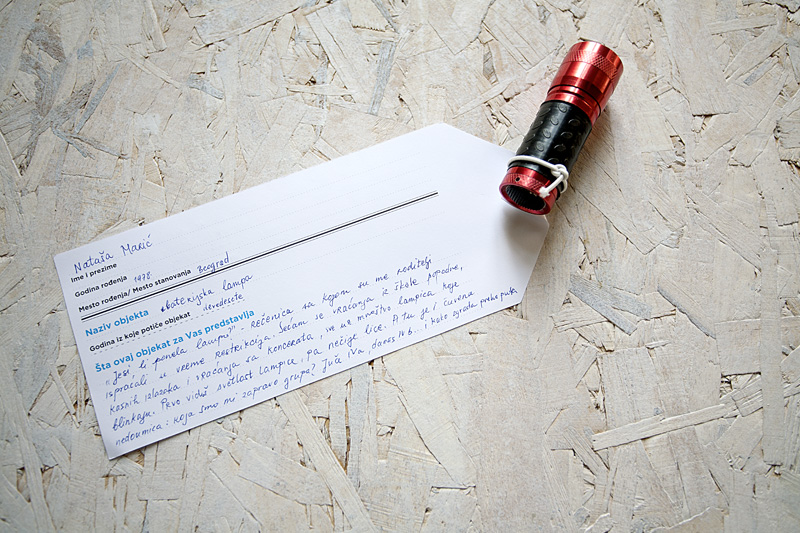 Nataša Marić
Ime i prezime
Godina rođenja 1978.
Mesto rođenja/ Mesto stanovanja Beograd
Naziv objekta baterijska lampa
Godina iz koje potiče objekat devedesete
Šta ovaj objekat za Vas predstavlja
"Jesi li ponela lampu?" - rečenica sa kojom su me roditelji
ispraćali u vreme restrikcija. Sećam se vraćanja iz škole popodne,
kasnih izlazaka i vraćanja sa koncerata, sve uz mnoštvo lampica koje
blinkaju. Prvo vidiš svetlost lampice, pa nečije lice. A tu je i čuvena
nedoumica: koja smo mi zapravo grupa? Juče IVa, danas IV b... i kako zgrada preko puta